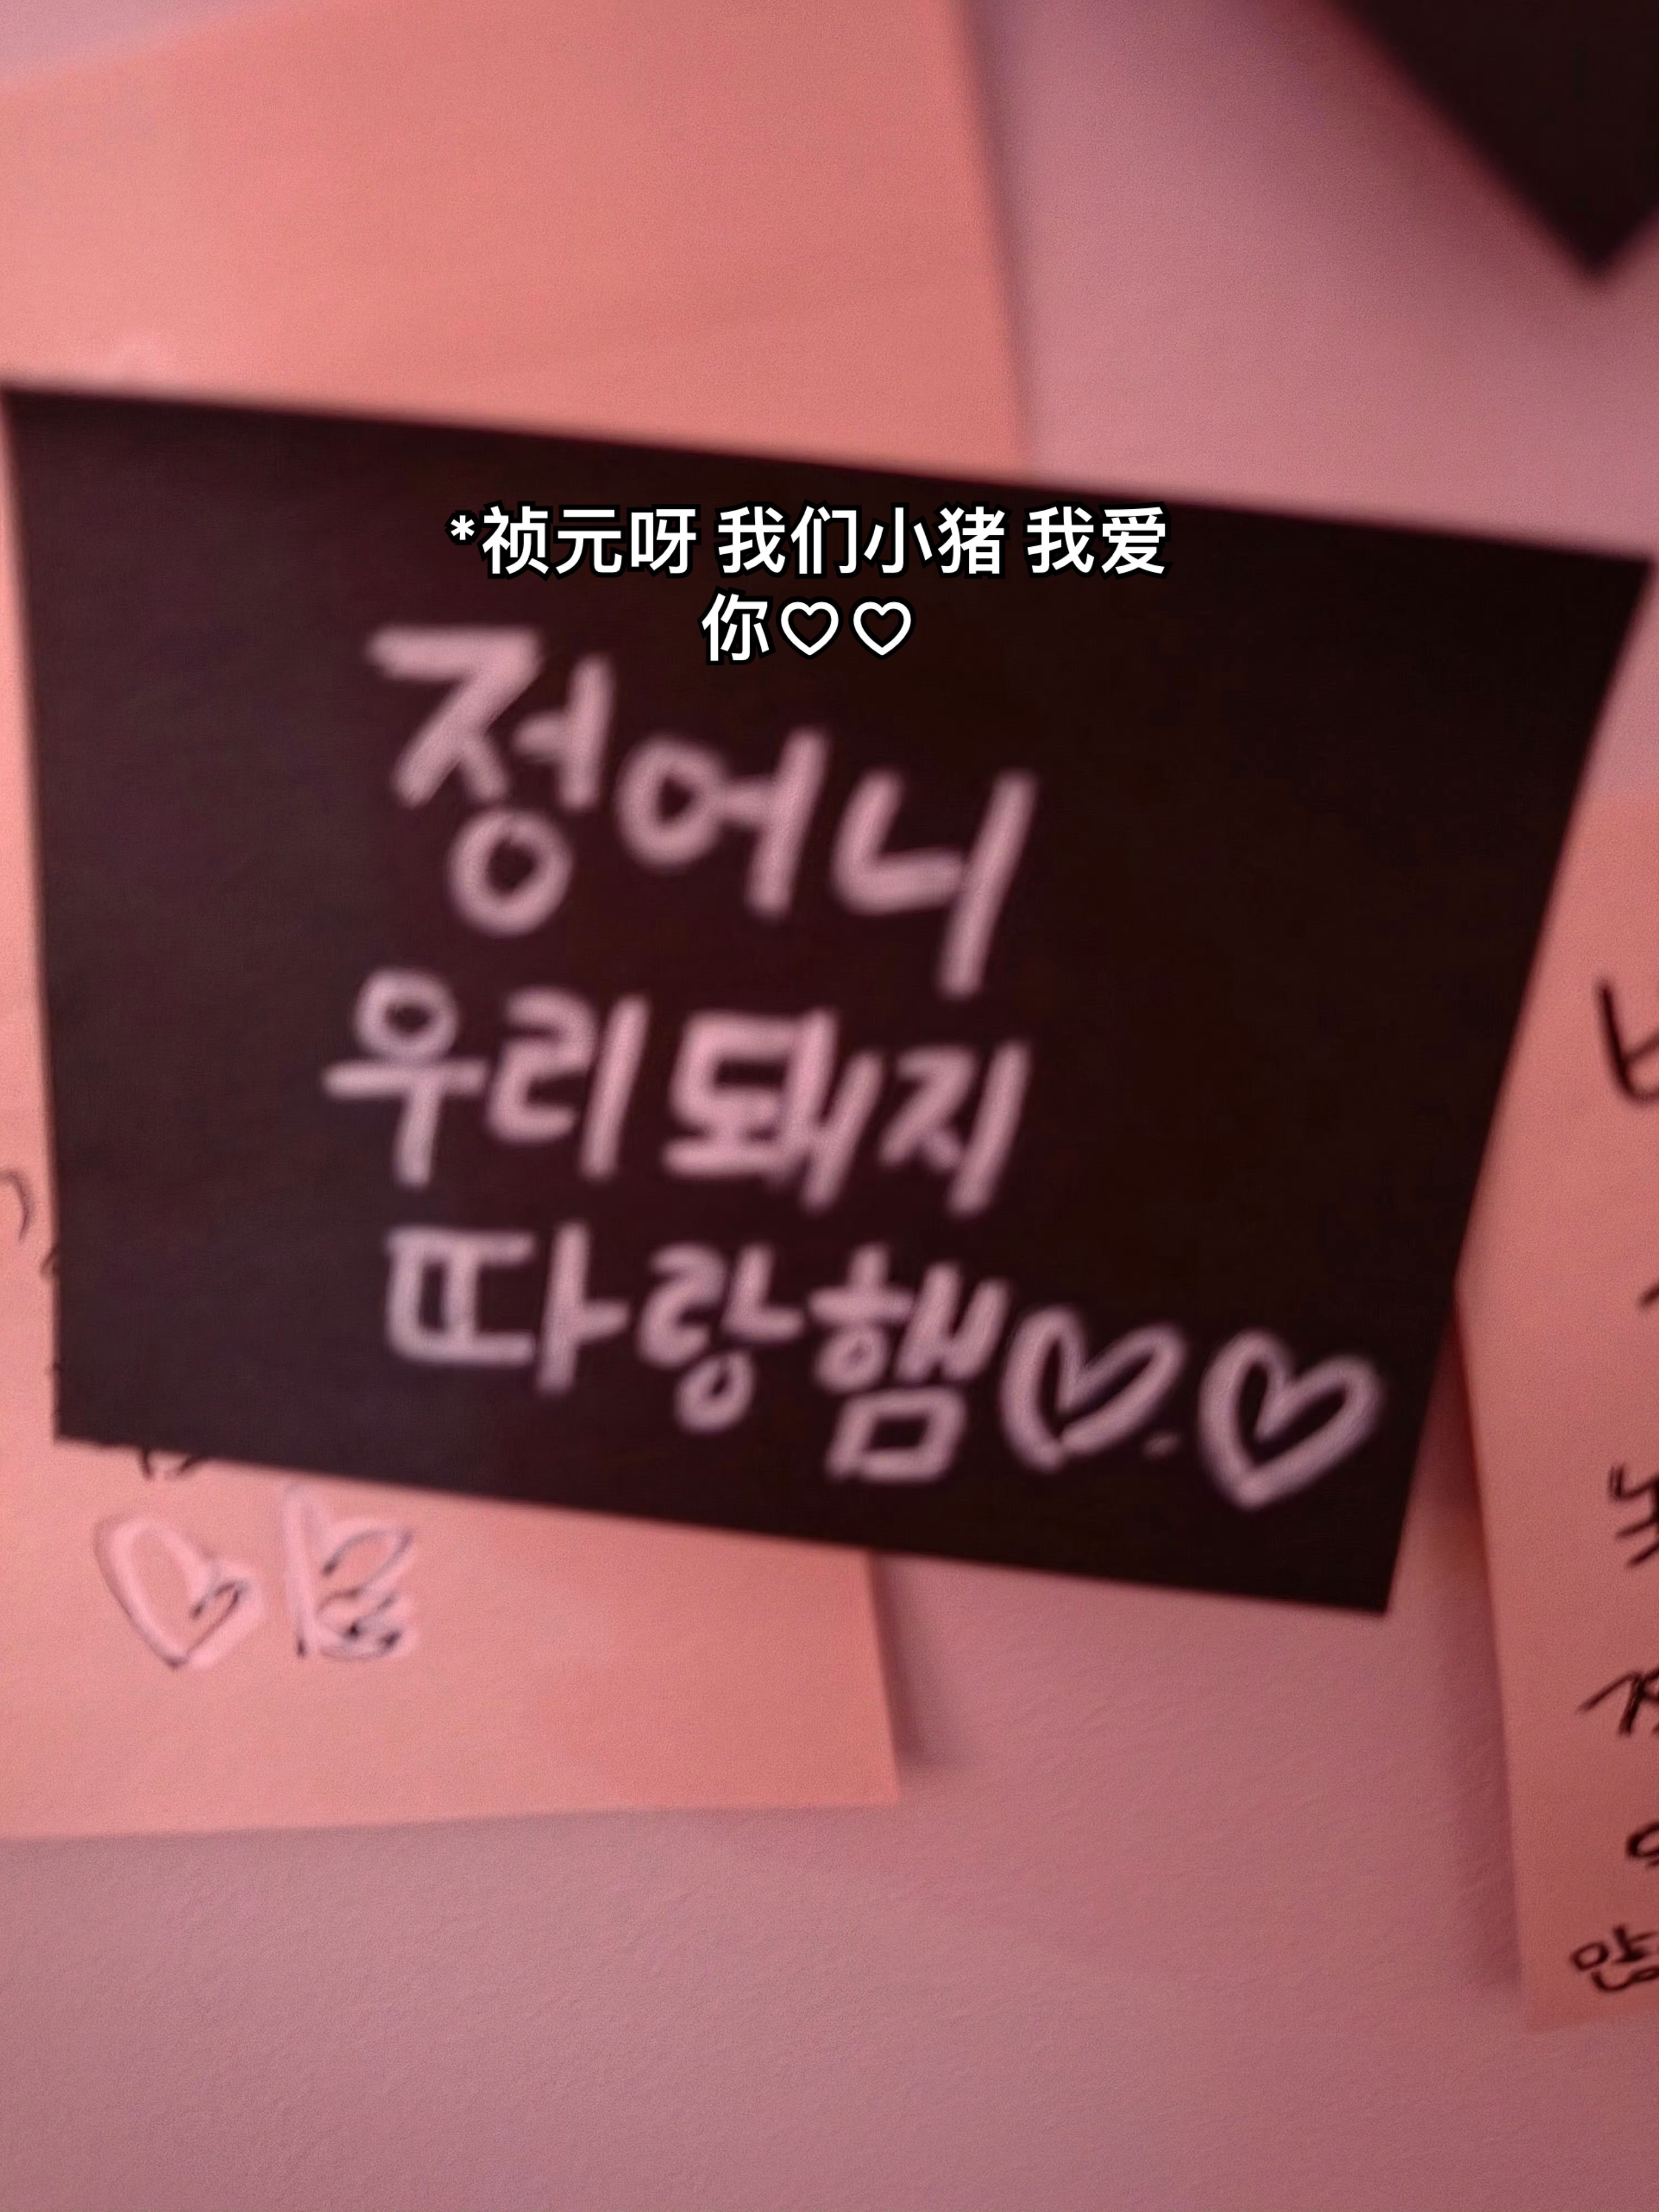 *祯元呀 我们小猪 我爱
你♡♡
정어니
우리 돼지
따랑햄♡.♡